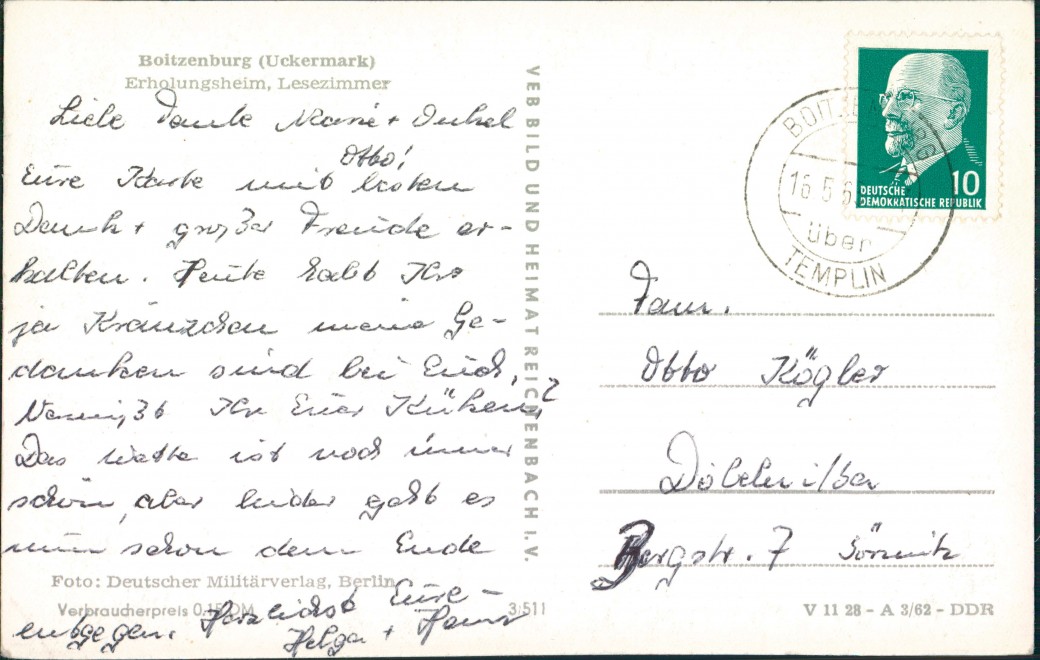 Boitzenburg (Uckermark)
Erholungsheim, Lesezimmer
Liebe Tante Marie + Onkel
Otto!
Eure Karte mit besten
Dank + großer Freude er-
halten. Heute habt Ihr
ja Kränzchen meine Ge-
danken sind bei Euch.
Ihr Euer Küken?
Das Wetter ist noch immer
schön, aber leider geht es
nun schon dem Ende
entgegen. Herzlichst Eure
Helga + Hans
Foto: Deutscher Militärverlag, Berlin
Verbraucherpreis 0,15 DM
3/511
VEB BILD UND HEIMAT REICHENBACH I. V.
DEUTSCHE
DEMOKRATISCHE REPUBLIK
10
BOITZENBURG
16 5 6
über
TEMPLIN
Fam.
Otto Kögler
Döbeln i/Sa
Bergstr. 7 Sörmitz
V 11 28 - A 3/62 - DDR